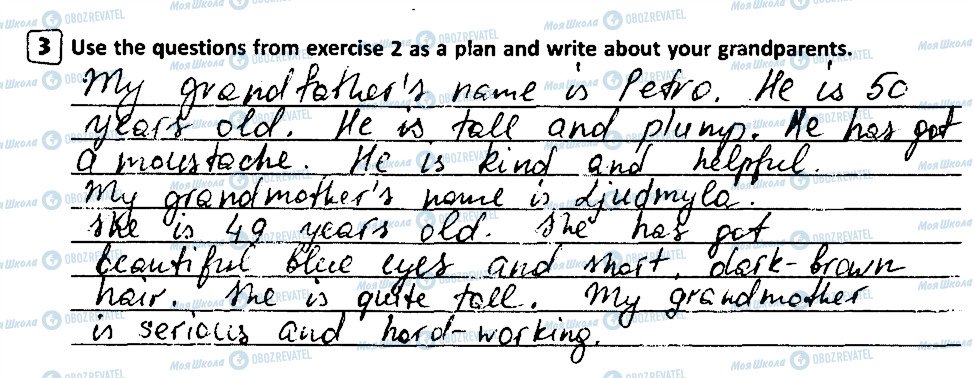 3 Use the questions from exercise 2 as a plan and write about your grandparents.
My grandfather's name is Petro. He is 50
years old. He is tall and plump. He has got
a moustache. He is kind and helpful.
My grandmother's name is Ljudmyla.
She is 49 years old. She has got
beautiful blue eyes and short, dark-brown
hair. She is quite tall. My grandmother
is serious and hard-working.
Моя Школа OBOZREVATEL